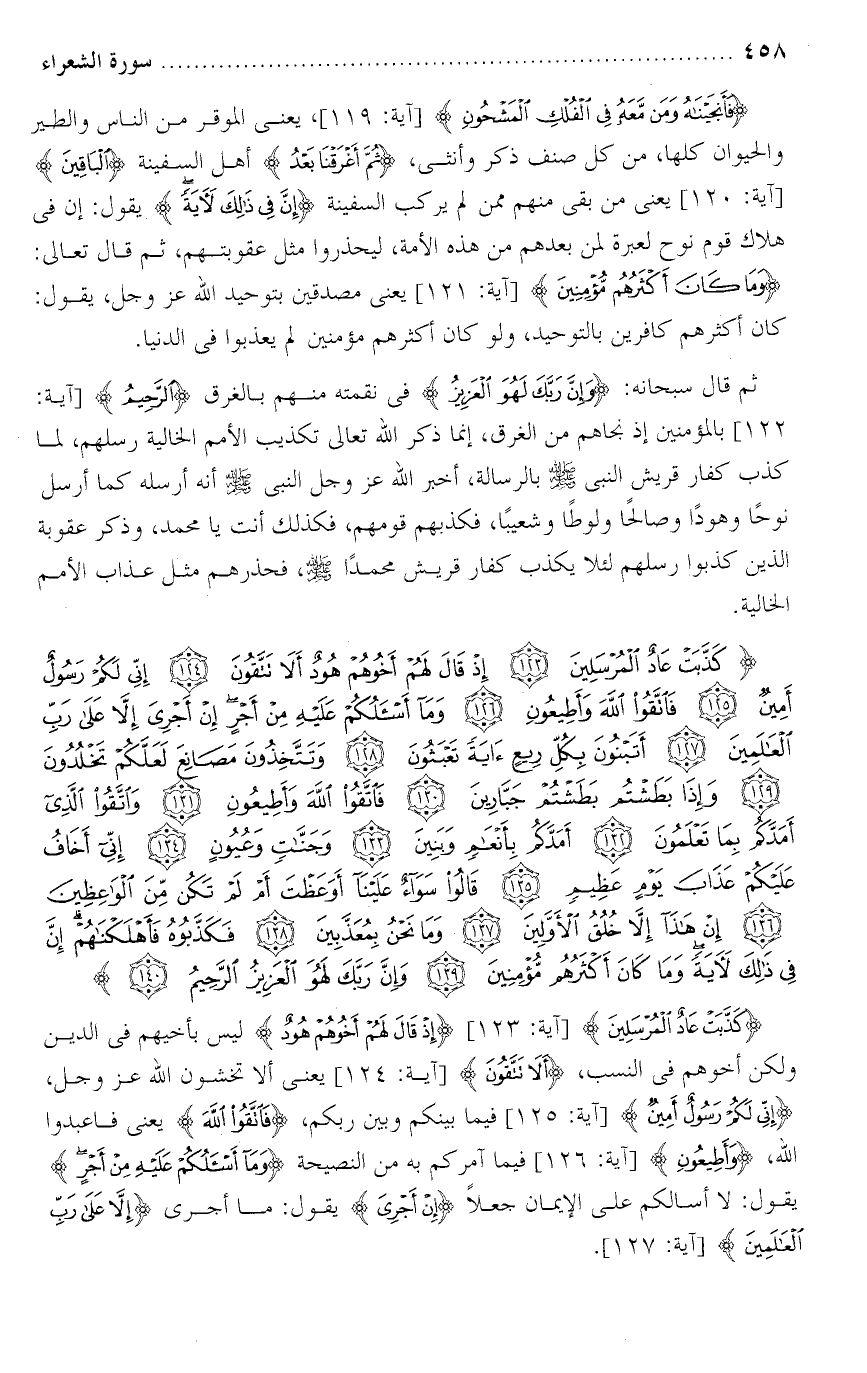 ٤٥٨ ........................................................................ سورة الشعراء
﴿فَأَنجَيْنَاهُ وَمَن مَّعَهُ فِي الْفُلْكِ الْمَشْحُونِ﴾ [آية: ١١٩]، يعنى الموقر من الناس والطير
والحيوان كلها، من كل صنف ذكر وأنثى، ﴿ثُمَّ أَغْرَقْنَا بَعْدُ﴾ أهل السفينة ﴿الْبَاقِينَ﴾
[آية: ١٢٠] يعنى من بقى منهم ممن لم يركب السفينة ﴿إِنَّ فِي ذَٰلِكَ لَآيَةً﴾ يقول: إن فى
هلاك قوم نوح لعبرة لمن بعدهم من هذه الأمة، ليحذروا مثل عقوبتهم، ثم قال تعالى:
﴿وَمَا كَانَ أَكْثَرُهُم مُّؤْمِنِينَ﴾ [آية: ١٢١] يعنى مصدقين بتوحيد الله عز وجل، يقول:
كان أكثرهم كافرين بالتوحيد، ولو كان أكثرهم مؤمنين لم يعذبوا فى الدنيا.
ثم قال سبحانه: ﴿وَإِنَّ رَبَّكَ لَهُوَ الْعَزِيزُ﴾ فى نقمته منهم بالغرق ﴿الرَّحِيمُ﴾ [آية:
١٢٢] بالمؤمنين إذ نجاهم من الغرق، إنما ذكر الله تعالى تكذيب الأمم الخالية رسلهم، لما
كذب كفار قريش النبى ﷺ بالرسالة، أخبر الله عز وجل النبى ﷺ أنه أرسله كما أرسل
نوحًا وهودًا وصالحًا ولوطًا وشعيبًا، فكذبهم قومهم، فكذلك أنت يا محمد، وذكر عقوبة
الذين كذبوا رسلهم لئلا يكذب كفار قريش محمدًا ﷺ، فحذرهم مثل عذاب الأمم
الخالية.
﴿كَذَّبَتْ عَادٌ الْمُرْسَلِينَ ١٢٣ إِذْ قَالَ لَهُمْ أَخُوهُمْ هُودٌ أَلَا تَتَّقُونَ ١٢٤ إِنِّي لَكُمْ رَسُولٌ
أَمِينٌ ١٢٥ فَاتَّقُوا اللَّهَ وَأَطِيعُونِ ١٢٦ وَمَا أَسْأَلُكُمْ عَلَيْهِ مِنْ أَجْرٍ إِنْ أَجْرِيَ إِلَّا عَلَىٰ رَبِّ
الْعَالَمِينَ ١٢٧ أَتَبْنُونَ بِكُلِّ رِيعٍ ءَايَةً تَعْبَثُونَ ١٢٨ وَتَتَّخِذُونَ مَصَانِعَ لَعَلَّكُمْ تَخْلُدُونَ
١٢٩ وَإِذَا بَطَشْتُم بَطَشْتُمْ جَبَّارِينَ ١٣٠ فَاتَّقُوا اللَّهَ وَأَطِيعُونِ ١٣١ وَاتَّقُوا الَّذِي
أَمَدَّكُم بِمَا تَعْلَمُونَ ١٣٢ أَمَدَّكُم بِأَنْعَامٍ وَبَنِينَ ١٣٣ وَجَنَّاتٍ وَعُيُونٍ ١٣٤ إِنِّي أَخَافُ
عَلَيْكُمْ عَذَابَ يَوْمٍ عَظِيمٍ ١٣٥ قَالُوا سَوَاءٌ عَلَيْنَا أَوَعَظْتَ أَمْ لَمْ تَكُن مِّنَ الْوَاعِظِينَ
١٣٦ إِنْ هَٰذَا إِلَّا خُلُقُ الْأَوَّلِينَ ١٣٧ وَمَا نَحْنُ بِمُعَذَّبِينَ ١٣٨ فَكَذَّبُوهُ فَأَهْلَكْنَاهُمْ إِنَّ
فِي ذَٰلِكَ لَآيَةً وَمَا كَانَ أَكْثَرُهُم مُّؤْمِنِينَ ١٣٩ وَإِنَّ رَبَّكَ لَهُوَ الْعَزِيزُ الرَّحِيمُ ١٤٠﴾
﴿كَذَّبَتْ عَادٌ الْمُرْسَلِينَ﴾ [آية: ١٢٣] ﴿إِذْ قَالَ لَهُمْ أَخُوهُمْ هُودٌ﴾ ليس بأخيهم فى الدين
ولكن أخوهم فى النسب، ﴿أَلَا تَتَّقُونَ﴾ [آية: ١٢٤] يعنى ألا تخشون الله عز وجل،
﴿إِنِّي لَكُمْ رَسُولٌ أَمِينٌ﴾ [آية: ١٢٥] فيما بينكم وبين ربكم، ﴿فَاتَّقُوا اللَّهَ﴾ يعنى فاعبدوا
الله، ﴿وَأَطِيعُونِ﴾ [آية: ١٢٦] فيما آمركم به من النصيحة ﴿وَمَا أَسْأَلُكُمْ عَلَيْهِ مِنْ أَجْرٍ﴾
يقول: لا أسالكم على الإيمان جعلاً ﴿إِنْ أَجْرِيَ﴾ يقول: ما أجرى ﴿إِلَّا عَلَىٰ رَبِّ
الْعَالَمِينَ﴾ [آية: ١٢٧].